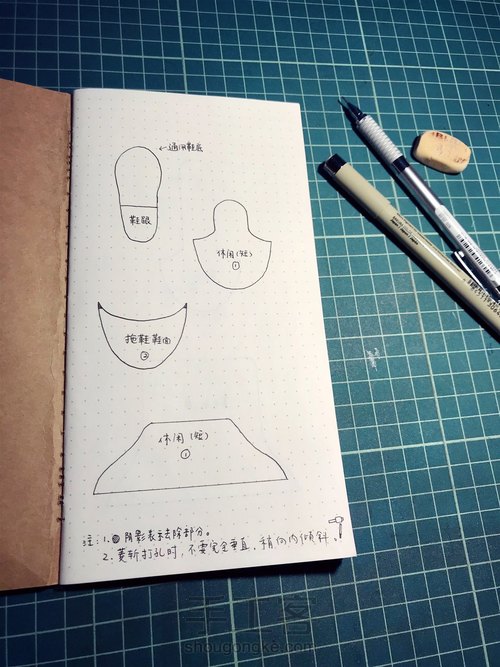 ←通用鞋底
鞋跟
休闲(短)
①
拖鞋鞋面
②
休闲(短)
①
注:1. 阴影表示去除部分。
2. 菱斩打孔时,不要完全垂直,稍向内倾斜。
手工客
shougongke.com